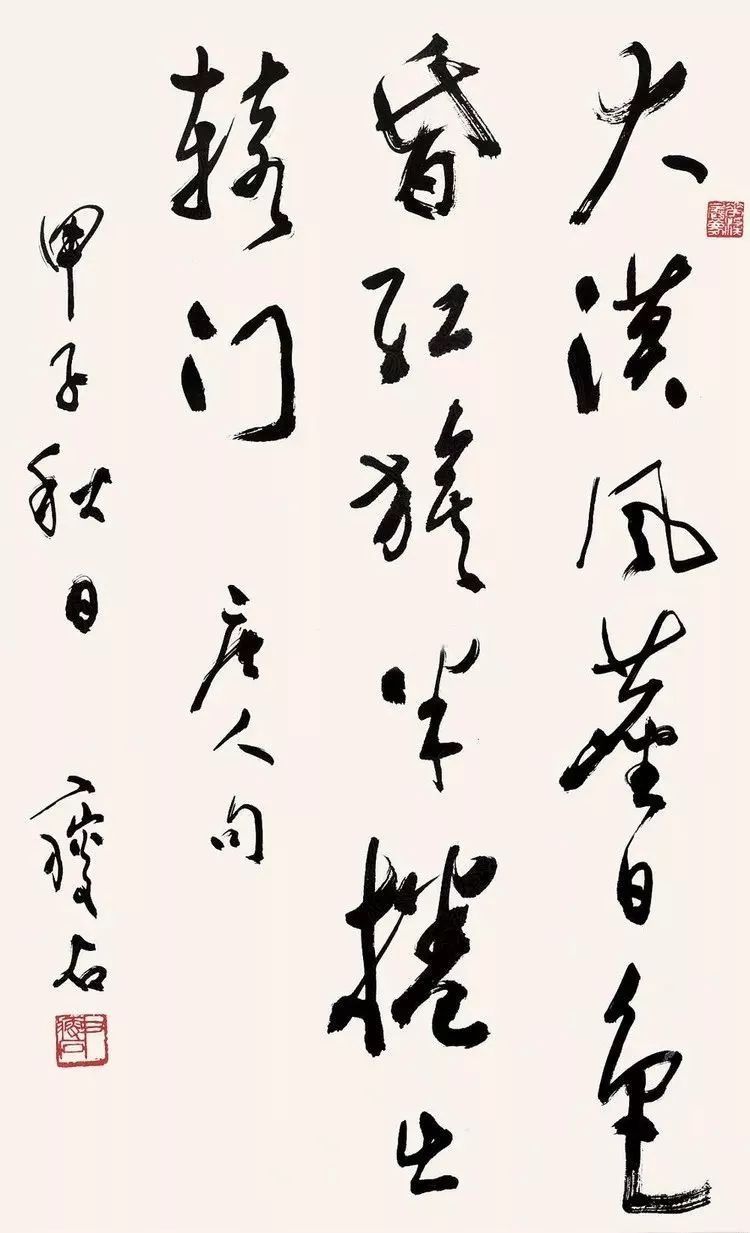 大漠风尘日色
昏红旗半捲出
辕门
唐人句
甲子秋日
瘦石